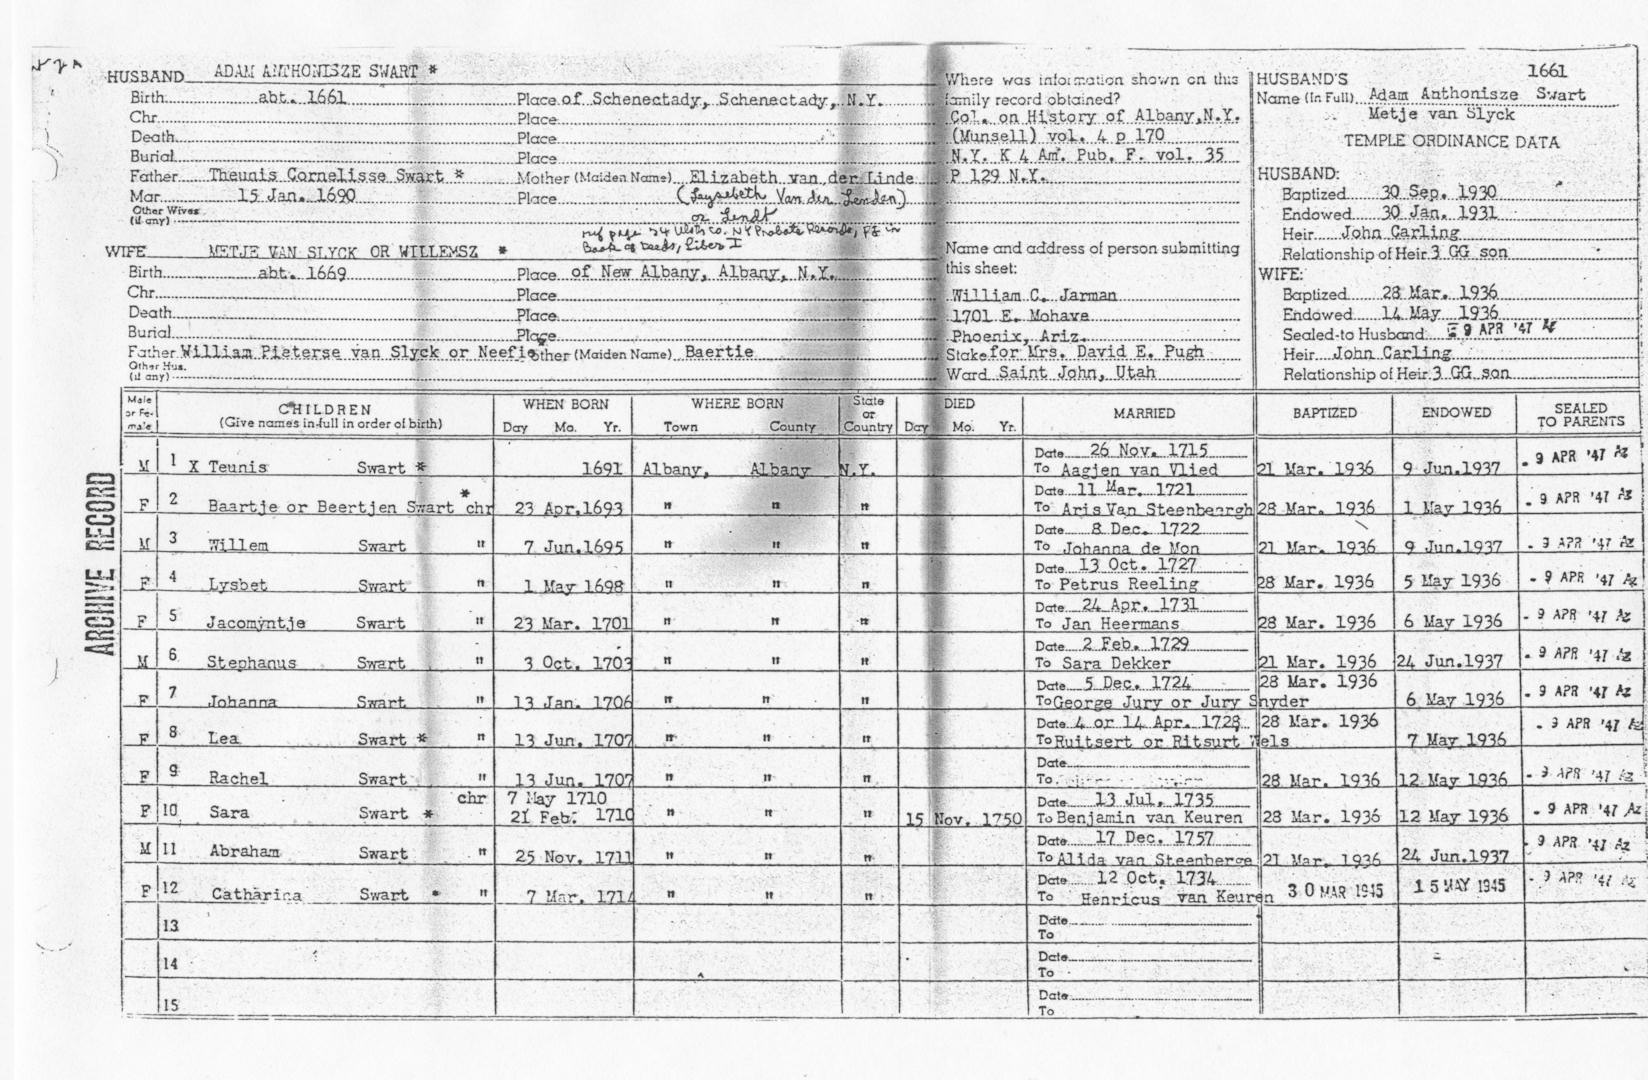 HUSBAND ADAM ANTHONISZE SWART *
Birth abt. 1661 Place of Schenectady, Schenectady, N.Y.
Chr. Place
Death Place
Burial Place
Father Theunis Cornelisse Swart * Mother (Maiden Name) Elizabeth van der Linde
Mar. 15 Jan. 1690 Place (Leysebeth Van der Lenden)
Other Wives (if any) or Lendt
ref page 34 Ulster Co. NY Probate Records, PI in
Book of Deeds, Liber I
WIFE METJE VAN SLYCK OR WILLEMSZ *
Birth abt. 1669 Place of New Albany, Albany, N.Y.
Chr. Place
Death Place
Burial Place
Father William Pieterse van Slyck or Neefie Mother (Maiden Name) Baertie
Other Hus. (if any)
Where was information shown on this
family record obtained?
Col. on History of Albany, N.Y.
(Munsell) vol. 4 p 170
N.Y. K 4 Am. Pub. F. vol. 35
P 129 N.Y.
Name and address of person submitting
this sheet:
William C. Jarman
1701 E. Mohave
Phoenix, Ariz.
Stake for Mrs. David E. Pugh
Ward Saint John, Utah
1661
HUSBAND'S
Name (in Full) Adam Anthonisze Swart
Metje van Slyck
TEMPLE ORDINANCE DATA
HUSBAND:
Baptized 30 Sep. 1930
Endowed 30 Jan. 1931
Heir John Carling
Relationship of Heir 3 GG son
WIFE:
Baptized 28 Mar. 1936
Endowed 14 May 1936
Sealed to Husband 9 APR '47 Az
Heir John Carling
Relationship of Heir 3 GG son
ARCHIVE RECORD
Male or Female CHILDREN (Give names in full in order of birth) WHEN BORN Day Mo. Yr. WHERE BORN Town County State or Country DIED Day Mo. Yr. MARRIED BAPTIZED ENDOWED SEALED TO PARENTS
Date 26 Nov. 1715
M 1 X Teunis Swart * 1691 Albany, Albany N.Y. To Aagjen van Vlied 21 Mar. 1936 9 Jun. 1937 9 APR '47 Az
Date 11 Mar. 1721
F 2 Baartje or Beertjen Swart * chr 23 Apr. 1693 " " " To Aris Van Steenbergh 28 Mar. 1936 1 May 1936 9 APR '47 Az
Date 8 Dec. 1722
M 3 Willem Swart " 7 Jun. 1695 " " " To Johanna de Mon 21 Mar. 1936 9 Jun. 1937 9 APR '47 Az
Date 13 Oct. 1727
F 4 Lysbet Swart " 1 May 1698 " " " To Petrus Reeling 28 Mar. 1936 5 May 1936 9 APR '47 Az
Date 24 Apr. 1731
F 5 Jacomyntje Swart " 23 Mar. 1701 " " " To Jan Heermans 28 Mar. 1936 6 May 1936 9 APR '47 Az
Date 2 Feb. 1729
M 6 Stephanus Swart " 3 Oct. 1703 " " " To Sara Dekker 21 Mar. 1936 24 Jun. 1937 9 APR '47 Az
Date 5 Dec. 1724 28 Mar. 1936
F 7 Johanna Swart " 13 Jan. 1706 " " " To George Jury or Jury Snyder 6 May 1936 9 APR '47 Az
Date 4 or 14 Apr. 1728 28 Mar. 1936
F 8 Lea Swart * " 13 Jun. 1707 " " " To Ruitsert or Ritsurt Wels 7 May 1936 9 APR '47 Az
Date
F 9 Rachel Swart " 13 Jun. 1707 " " " To 28 Mar. 1936 12 May 1936 9 APR '47 Az
chr 7 May 1710 Date 13 Jul. 1735
F 10 Sara Swart * 21 Feb. 1710 " " " 15 Nov. 1750 To Benjamin van Keuren 28 Mar. 1936 12 May 1936 9 APR '47 Az
Date 17 Dec. 1757
M 11 Abraham Swart " 25 Nov. 1711 " " " To Alida van Steenberge 21 Mar. 1936 24 Jun. 1937 9 APR '47 Az
Date 12 Oct. 1734
F 12 Catharina Swart * " 7 Mar. 1714 " " " To Henricus van Keuren 30 MAR 1945 15 MAY 1945 9 APR '47 Az
13 Date
To
14 Date
To
15 Date
To